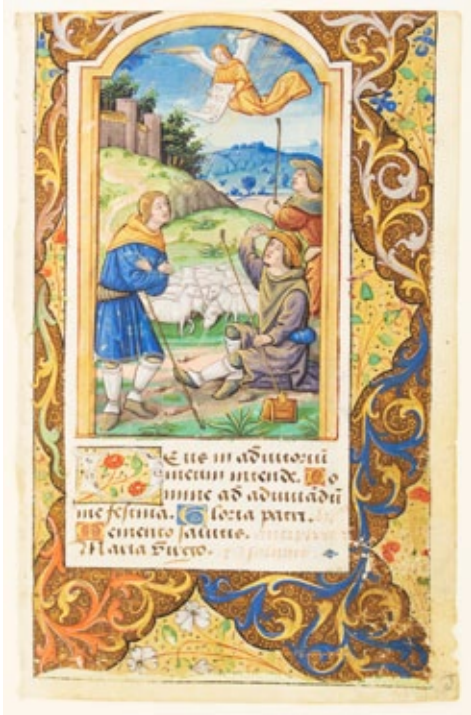 Eus in adiutoriū
meum intende. Do
mine ad adiuuādū
me festina. Gloria patri.
Memento salutis.
Maria Virgo.